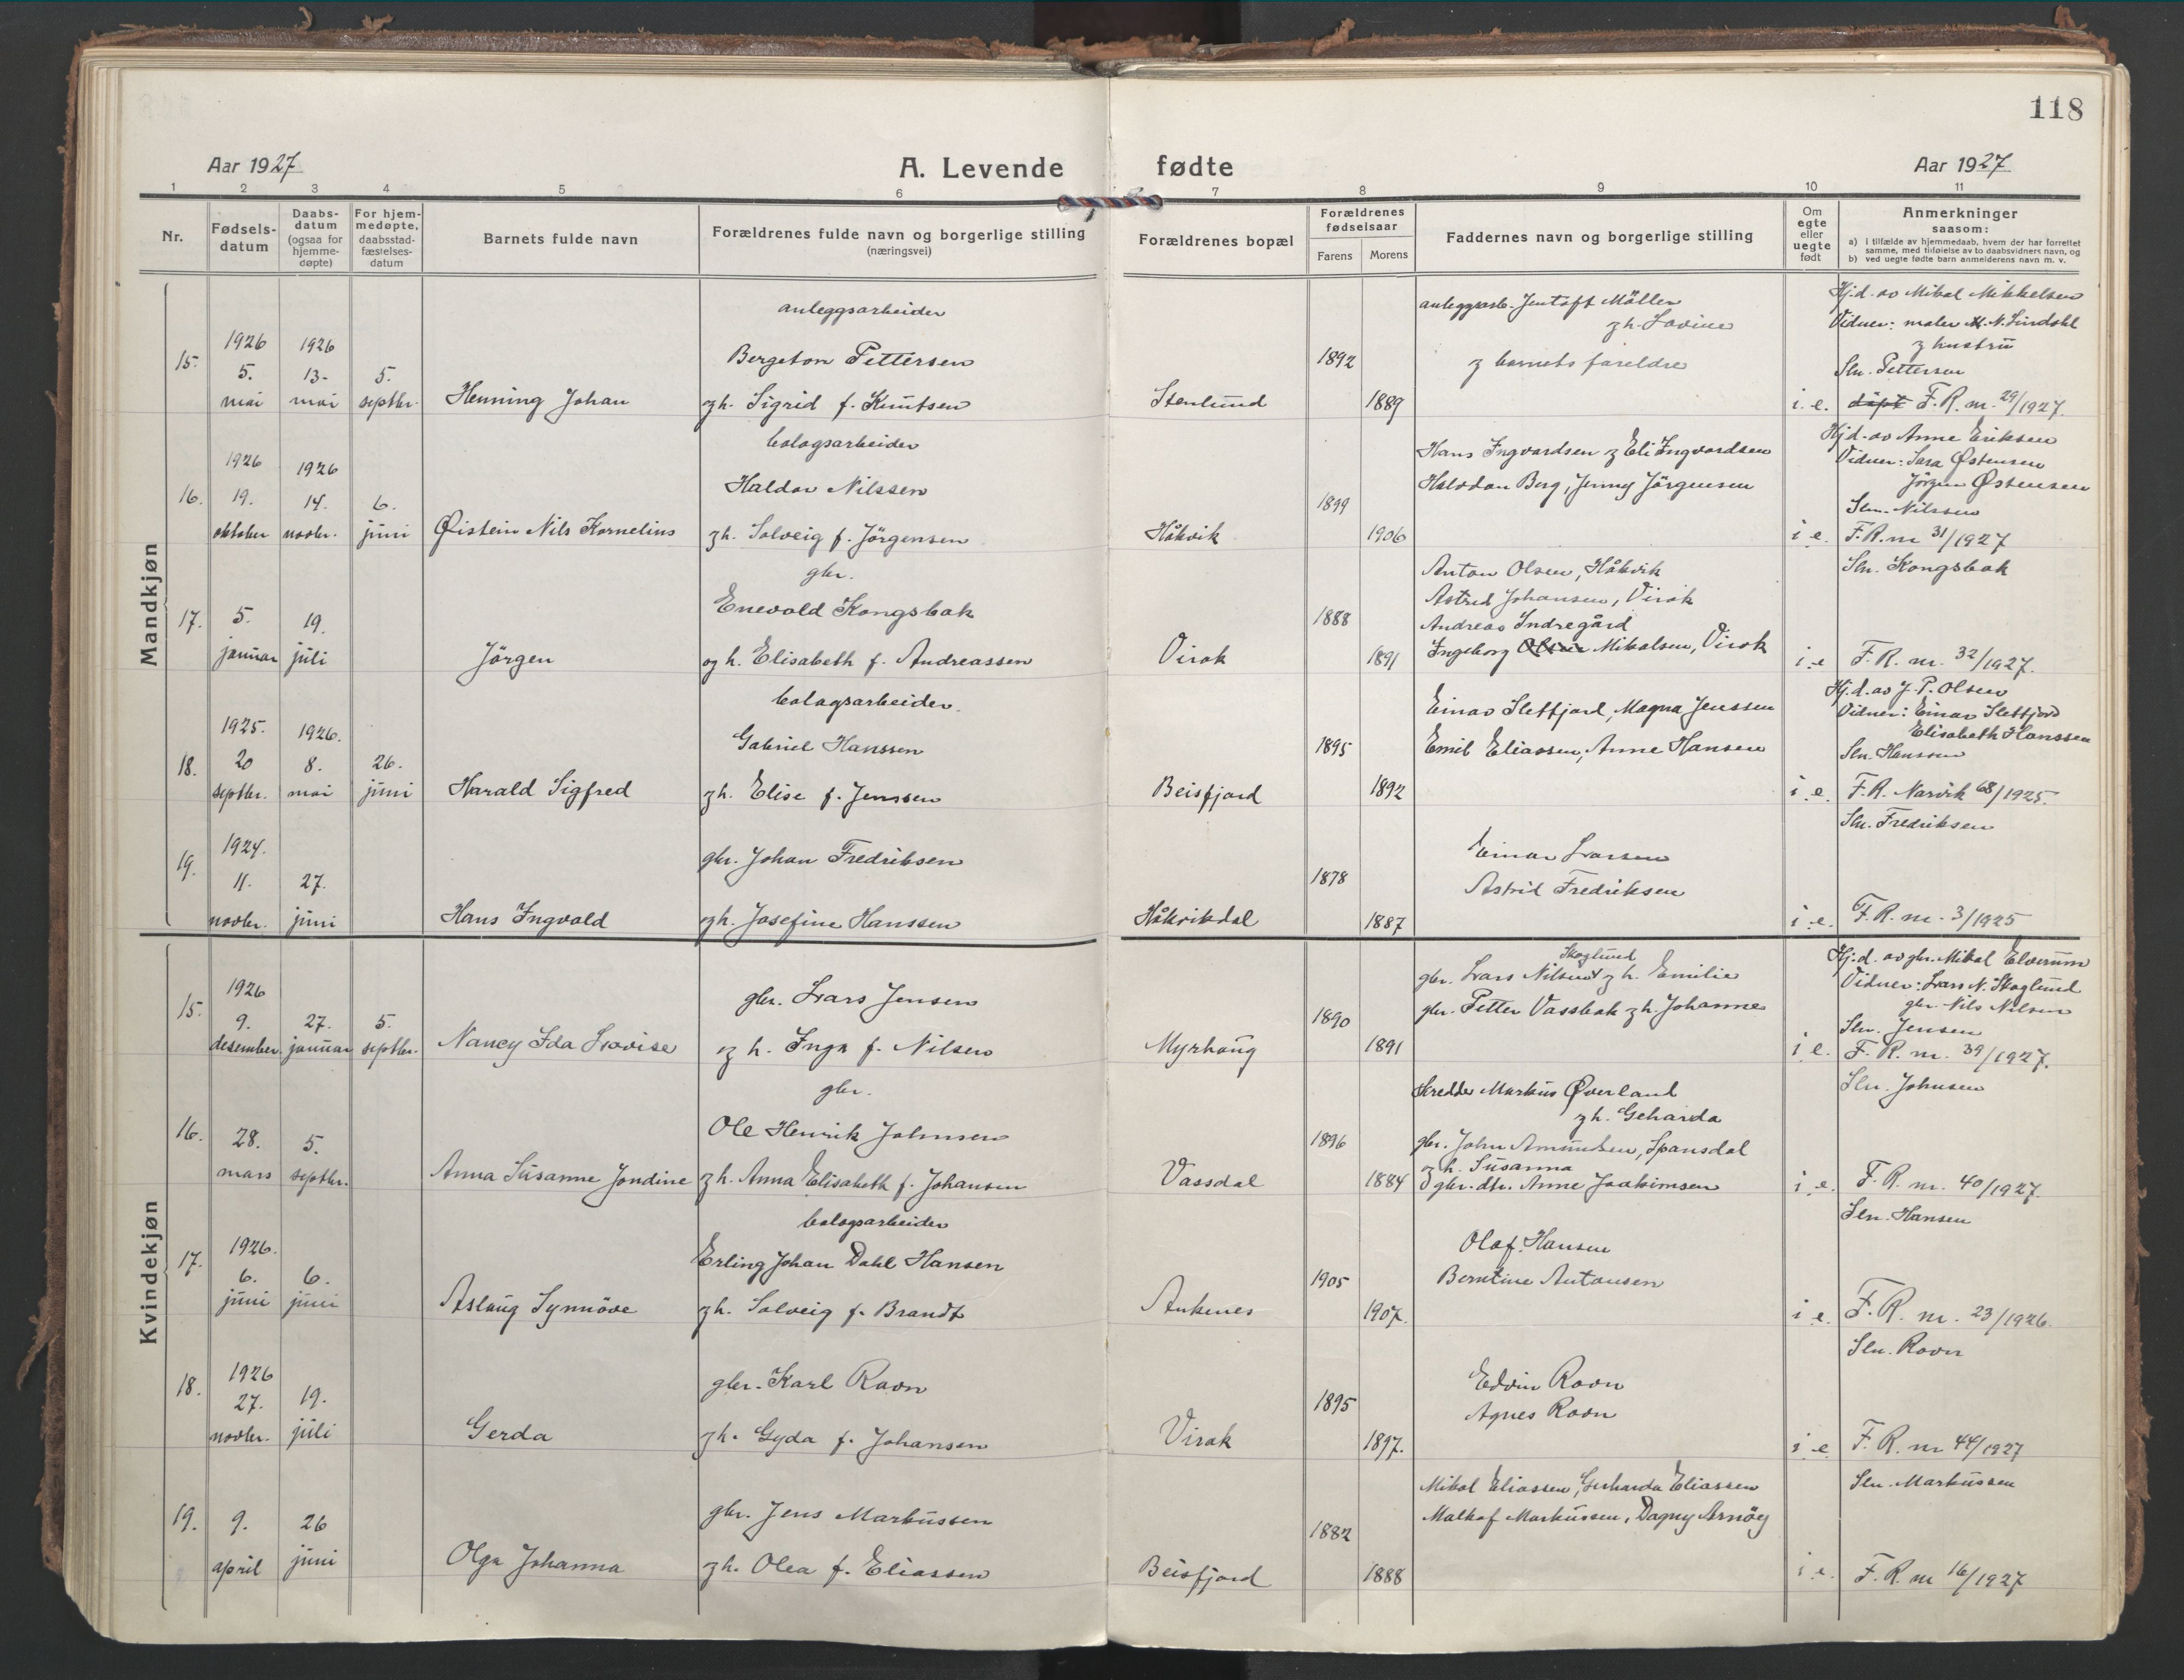 118
Aar 1927
A. Levende fødte
Aar 1927
1 2 3 4 5 6 7 8 9 10 11
Nr.
Fødsels-
datum
Daabs-
datum
(ogsaa for
hjemme-
døpte)
For hjem-
medøpte,
daabsstad-
fæstelses-
datum
Barnets fulde navn
Forældrenes fulde navn og borgerlige stilling
(næringsvei)
Forældrenes bopæl
Forældrenes
fødselsaar
Farens Morens
Faddernes navn og borgerlige stilling
Om
egte
eller
uegte
født
Anmerkninger
saasom:
a) i tilfælde av hjemmedaab, hvem der har forrettet
samme, med tilføielse av to daabsvidners navn, og
b) ved uegte fødte barn anmelderens navn m. v.
Mandkjøn
15.
1926
5.
mai
1926
13.
mai
5.
septbr.
Henning Johan
anleggsarbeider
Bergeton Pettersen
og h. Sigrid f. Knutsen
Stenlund
1892
1889
anleggsarb. Jentoft Möller
og h. Lovine
og barnets foreldre
i. e.
Hj.d. av Mikal Mikkelsen
Vidner: maler M. N. Lindahl
og hustru
Sln. Pettersen
döpt F. R. nr. 29/1927.
16.
1926
19.
oktober
1926
14.
novbr.
6.
juni
Øistein Nils Kornelius
bolagsarbeider
Haldor Nilssen
og h. Solveig f. Jörgensen
Håkvik
1899
1906
Hans Ingvardsen og Eli Ingvardsen
Halvdan Berg, Jenny Jörgensen
i e.
Hj.d. av Anne Eriksen
Vidner: Sara Østensen
Jörgen Østensen
Sln. Nilssen
F. R. nr 31/1927
17.
5.
januar
19.
juli
Jörgen
gbr.
Enevold Kongsbak
og h. Elisabeth f. Andreassen
Virak
1888
1891
Anton Olsen, Håkvik
Astrid Johansen, Virak
Andreas Indregård
Ingeborg Olsen Mikalsen, Virak
i. e
Sln. Kongsbak
F. R. nr. 32/1927.
18.
1925.
20
septbr.
1926.
8.
mai
26.
juni
Harald Sigfred
bolagsarbeider.
Gabriel Hanssen
og h. Elise f. Jenssen
Beisfjord
1895
1892
Einar Slettjord, Magna Jenssen
Emil Eliassen, Anne Hansen
i. e.
Hj. d. av J. P. Olsen
Vidner: Einar Slettjord
Elisabeth Hanssen
Sln. Hanssen
F. R. Narvik 68/1925.
19.
1924.
11.
novbr.
27.
juni
Hans Ingvald
gbr. Johan Fredriksen
og h. Josefine Hanssen
Håkvikdal
1878
1887
Einar Larsen
Astrid Fredriksen
i. e.
Sln. Fredriksen
F. R. nr. 3/1925
Kvindekjøn
15.
1926
9.
desember.
27.
januar
5.
septbr.
Nancy Ida Lovise
gbr. Lars Jensen
og h. Inga f. Nilsen
Myrhaug
1890
1891
Skoglund
gbr. Lars Nilsen og h. Emilie
gbr. Petter Vassbak og h. Johanne
i. e.
Hj. d. av gbr. Mikal Elverum
Vidner: Lars N. Skoglund
gbr. Nils Nilsen
Sln. Jensen
F. R. nr. 39/1927.
16.
28.
mars
5.
septbr.
Anna Susanne Jondine
gbr.
Ole Henrik Johnsen
og h. Anna Elisabeth f. Johansen
Vassdal
1896
1884
Skredder Markus Øverland
og h. Geharda
gbr. John Amundsen, Spansdal
og h. Susanna
gbr. dtr. Anne Joakimsen
i e.
Sln. Johnsen
F. R. nr. 40/1927
17.
1926.
6.
juni
6.
juni
Aslaug Synnöve
bolagsarbeider
Erling Johan Dahl Hansen
og h. Solveig f. Brandt
Ankenes
1905
1907.
Olaf Hansen
Berntine Antonsen
i e.
Sln. Hansen
F. R. nr. 23/1926.
18.
1926
27.
novbr.
19.
juli
Gerda
gbr. Karl Ravn
og h. Gyda f. Johansen
Virak
1895
1897.
Edvin Ravn
Agnes Ravn
i e
Sln. Ravn
F. R. nr 44/1927
19.
9.
april
26
juni
Olga Johanna
gbr. Jens Markussen
og h. Olea f. Eliassen
Beisfjord
1882
1888
Mikal Eliassen, Gerharda Eliassen
Malkof Markussen, Dagny Arnöy
i e.
Sln. Markussen
F. R. nr 16/1927